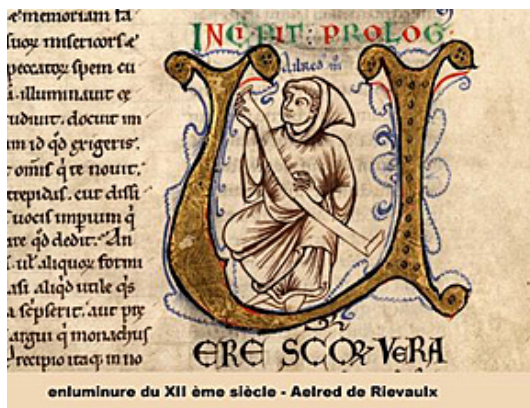 memoriam fa
suoꝝ misericors
peccatoꝝ spem cu
a. illuminauit
udiuit. docuit im
m id qd̄ exigeris.
te nouit.
trepidas. cur dissi
uocis impium q̄
qd̄ dedit. An
ul' aliquoꝝ formi
asi aliqd utile qs
aut
argui q̄ monachus
recipio itaq; in no
INCIPIT: PROLOG
U
ERE SCOꝜ VERA
enluminure du XII ème siècle - Aelred de Rievaulx